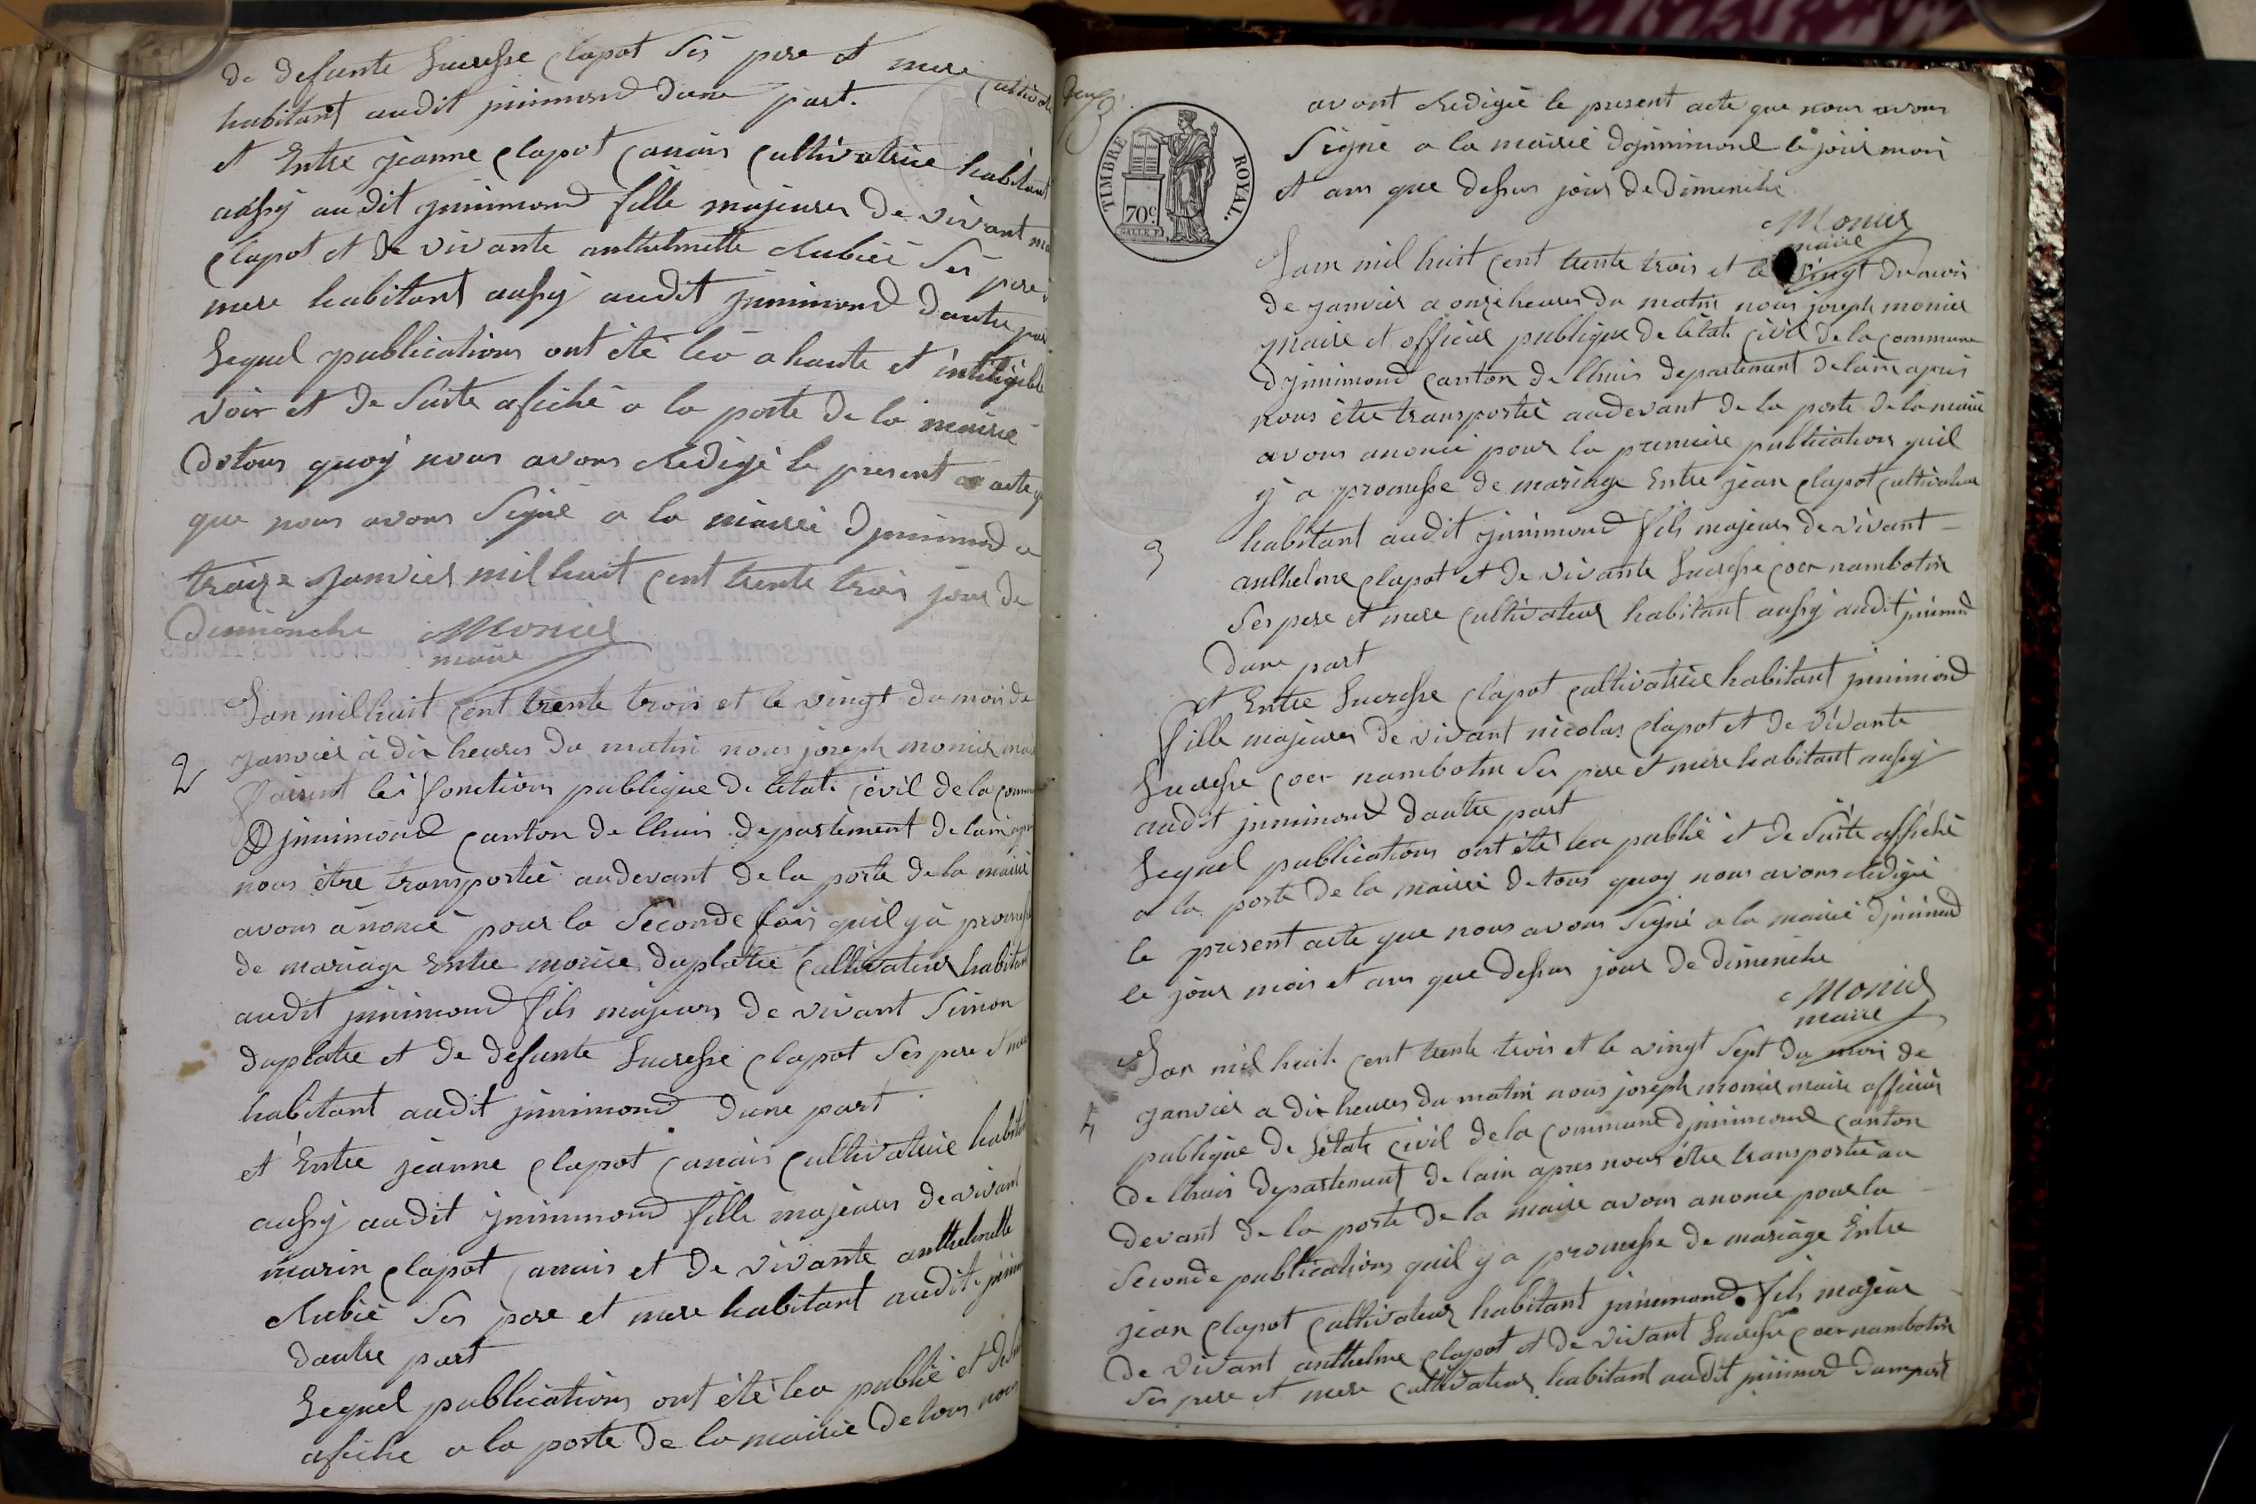 de defunte Lucresse Clapot Ses pere et mere
habitant audit jnnimond dune part.
et Entre jeanne Clapot Canais Cultivatrice habitant
aussy audit jnnimond fille majeures de vivant
Clapot et de vivante anthelmette Rubié Ses pere
mere habitant aussy audit jnnimond dautre part
Lequel publications ont été leu a haute et intiligible
voix et de Suite afiché a la porte de la mairie
detous quoy nous avons Redigé le present acte
que nous avons Signé a la mairie djnnimond
traize janvier mil huit Cent trente trois jour de
dimenche Monier
maire
Lan mil huit Cent trente trois et le vingt du mois de
2 janvier à dix heures du matin nous joseph monier
faisent les fonctions publique de létat Civil de la
Djnnimond Canton de lhuis departement de lain
nous être transportée audevant de la porte de la mairie
avons anoncé pour la Seconde fois quil y à promesse
de mariage Entre morice duplatre Cultivateur habitant
audit jnnimond fils majeurs de vivant Simon
duplatre et de defunte Lucresse Clapot Ses pere
habitant audit jnnimond dune part
et Entre jeanne Clapot Canais Cultivatrice
aussy audit jnnimond fille majeures de vivant
marin Clapot Canais et de vivante anthelmette
Rubié Ses pere et mere habitant audit
dautre part
Lequel publications ont été leu publié et
afiche a la porte de la mairie de tous
TIMBRE ROYAL.
70c
avont Redigée le present acte que nous avons
Signé a la mairie djnnimond le jour mois
et ans que dessus jour de Dimenche
Monier
maire
Lan mil huit Cent trente trois et le vingt du mois
de janvier a onze heures du matin nous joseph monier
maire et officier publique de létat Civil de la commune
djnnimond Canton de lhuis departement de lain apres
nous être transportée audevant de la porte de la mairie
avons anoncé pour la premiere publication quil
y a promesse de mariage Entre jean Clapot Cultivateur
habitant audit jnnimond fils majeurs de vivant
3 anthelme Clapot et de vivante Lucresse Coer nambotin
Ses pere et mere Cultivateur habitant aussy audit jnnimond
dune part
et Entre Lucresse Clapot Cultivatrice habitant jnnimond
fille majeures de vivant nicolas Clapot et de vivante
Lucresse Coer nambotin Ses pere et mere habitant aussy
audit jnnimond dautre part
Lequel publications ont été leu publié et de Suite affiché
a la porte de la mairie de tous quoy nous avons Redigée
le present acte que nous avons Signé a la mairie djnnimond
le jour mois et ans que dessus jour de dimenche
Monier
maire
Lan mil huit Cent trente trois et le vingt Sept du mois de
4 janvier a dix heures du matin nous joseph monier maire officier
publique de létat Civil de la Commune djnnimond Canton
de lhuis departement de lain apres nous être transportée au
devant de la porte de la mairie avons anoncé pour la
Seconde publications quil y a promesse de mariage Entre
jean Clapot Cultivateur habitant jnnimond fils majeur
de vivant anthelme Clapot et de vivant Lucresse Coer nambotin
Ses pere et mere Cultivateur habitant audit jnnimond dunepart